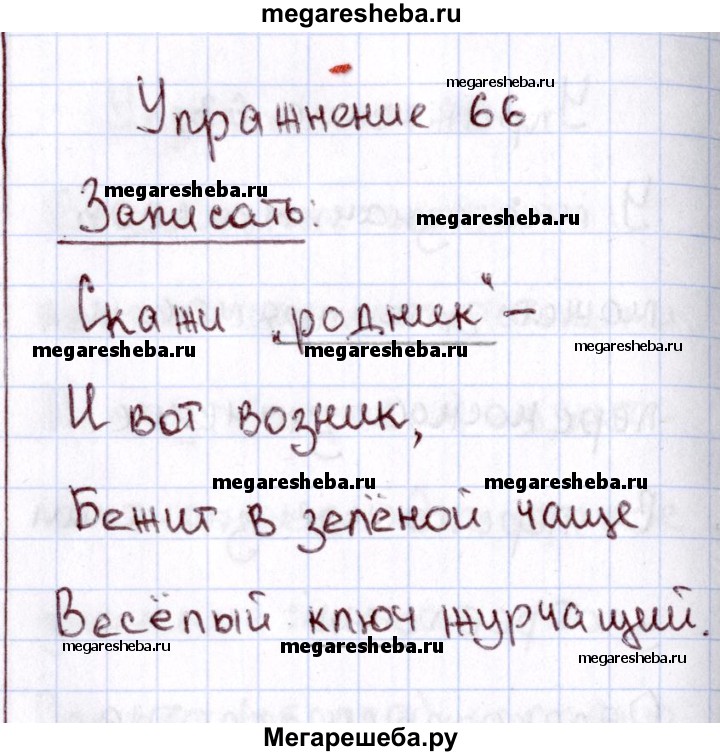 megaresheba.ru
Упражнение 66
megaresheba.ru
Записать:
megaresheba.ru
megaresheba.ru
Скажи „родник“ –
megaresheba.ru
megaresheba.ru
megaresheba.ru
И вот возник,
megaresheba.ru
megaresheba.ru
Бежит в зелёной чаще
Весёлый ключ журчащий.
megaresheba.ru
megaresheba.ru
megaresheba.ru
Мегарешеба.ру